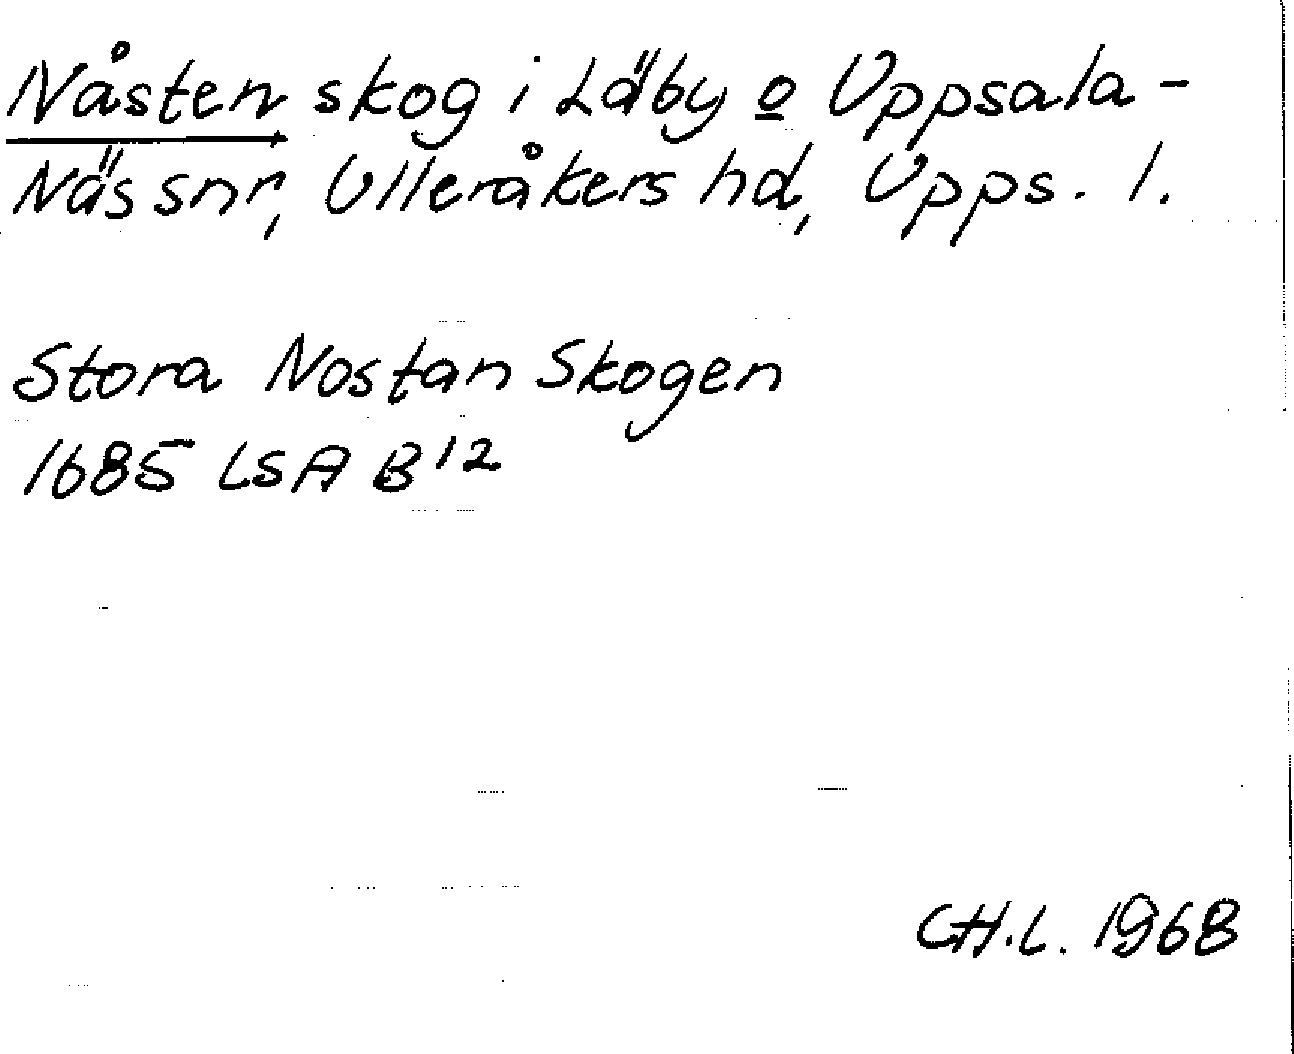 Nåsten skog i Läby o Uppsala-
Näs snr, Ulleråkers hd, Upps. l.
Stora Nostan Skogen
1685 LSA B 12
CH.L. 1968